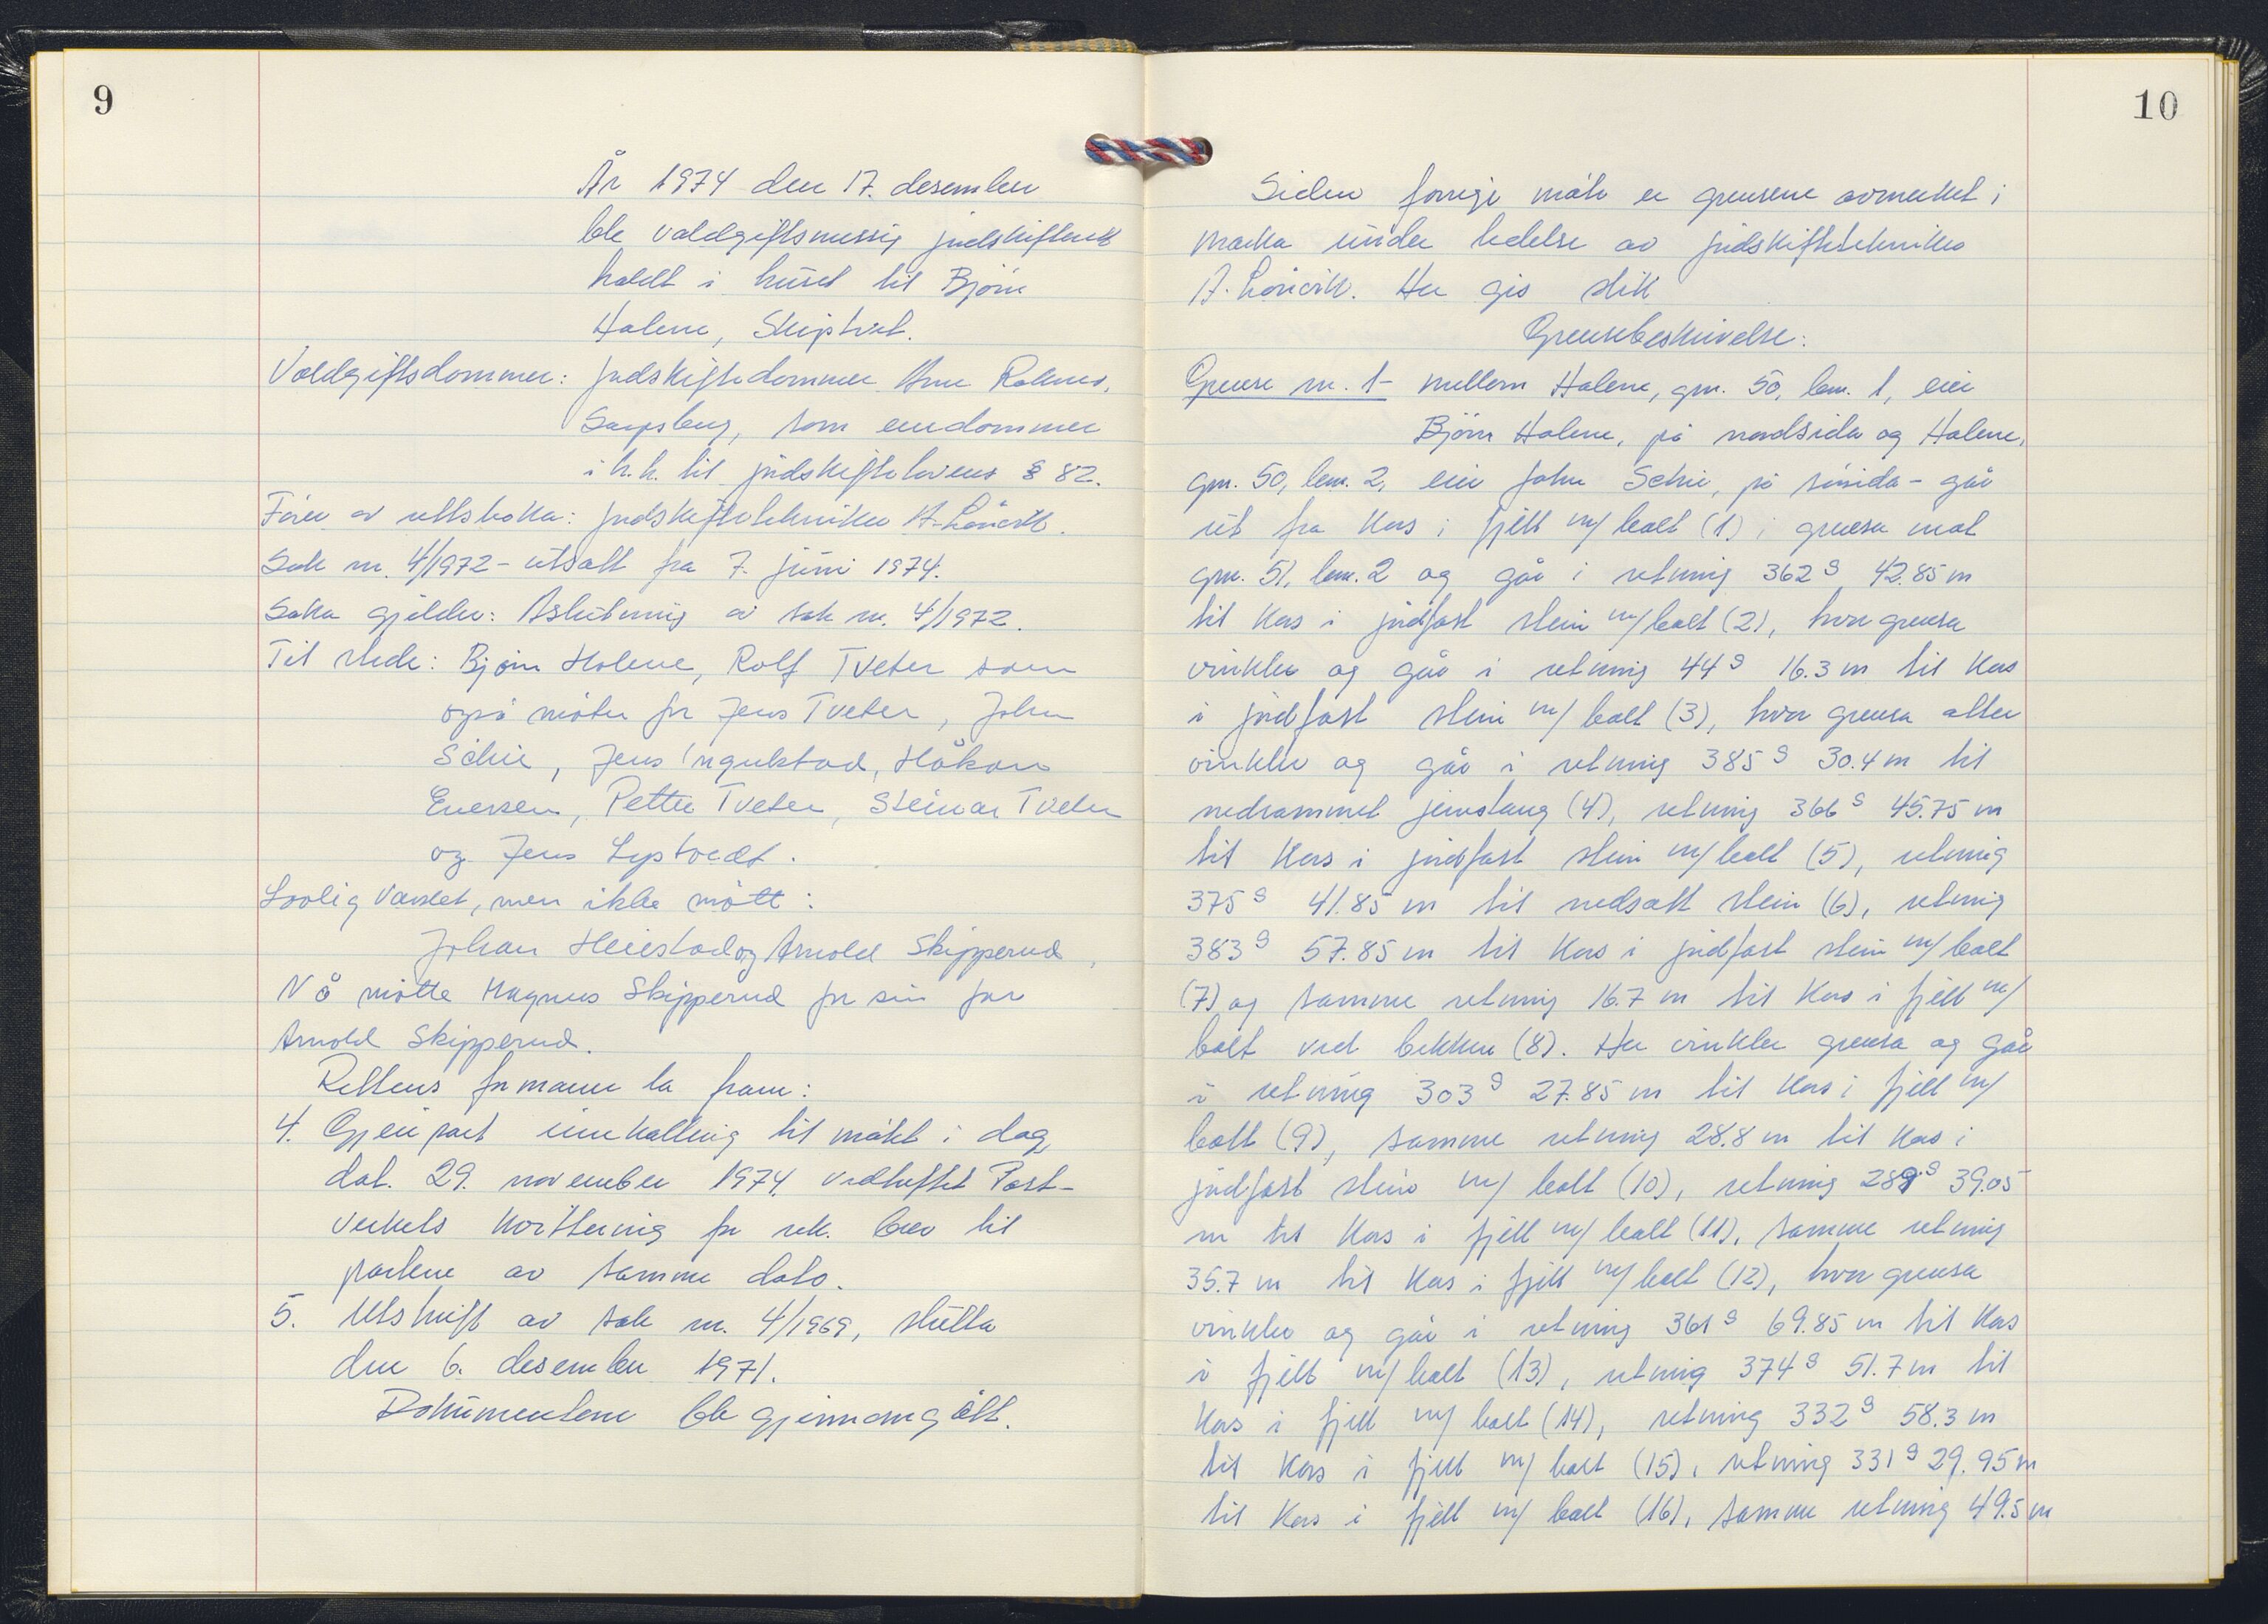 9
År 1974 den 17. desember
ble voldgiftsmessig jordskifterett
holdt i huset til Björn
Holene, Skiptvet.
Voldgiftsdommer: Jordskiftedommer Arne
Sarpsborg, som enedommer
i h.h. til jordskiftelovens § 82.
Fører av rettsboka: Jordskiftetekniker A.
Sak nr. 4/1972 - utsatt fra 7. juni 1974.
Saka gjelder: Avslutning av sak nr. 4/1972.
Til stede: Bjørn Holene, Rolf Tveter som
også møter for Jens Tveter, John
Schie, Jens Ingulstad, Håkon
Evensen, Petter Tveter, Steinar Tveter
og Jens Lystvedt.
Lovlig varslet, men ikke møtt:
Johan Heiestad og Arnold Skipperud,
Nå møtte Magnus Skipperud for sin far
Arnold Skipperud.
Rettens formann la fram:
4. Gjenpart innkalling til møtet i dag,
dat. 29. november 1974, vedheftet Post-
verkets kvittering for rek. brev til
partene av samme dato.
5. Utskrift av sak nr. 4/1969, slutta
den 6. desember 1971.
Dokumentene ble gjennomgått.
10
Siden forrige møte er grensene avmerket i
marka under ledelse av jordskiftetekniker
A. Her gis slik
Grensebeskrivelse:
Grense nr. 1 - mellom Holene, gnr. 50, bnr. 1, eier
Björn Holene, på nordsida og Holene,
gnr. 50, bnr. 2, eier John Schie, på sørsida - går
ut fra kors i fjell m/ bolt (1) i grensa mot
gnr. 51, bnr. 2 og går i retning 362 g 42.85 m
til kors i jordfast stein m/ bolt (2), hvor grensa
vinkler og går i retning 44 g 16.3 m til kors
i jordfast stein m/ bolt (3), hvor grensa atter
vinkler og går i retning 385 g 30.4 m til
nedrammet jernstang (4), retning 366 g 45.75 m
til kors i jordfast stein m/ bolt (5), retning
375 g 41.85 m til nedsatt stein (6), retning
383 g 57.85 m til kors i jordfast stein m/ bolt
(7) og samme retning 16.7 m til kors i fjell m/
bolt ved bekken (8). Her vinkler grensa og går
i retning 303 g 27.85 m til kors i fjell m/
bolt (9), samme retning 28.8 m til kors i
jordfast stein m/ bolt (10), retning 289 g 39.05
m til kors i fjell m/ bolt (11), samme retning
35.7 m til kors i fjell m/ bolt (12), hvor grensa
vinkler og går i retning 361 g 69.85 m til kors
i fjell m/ bolt (13), retning 374 g 51.7 m til
kors i fjell m/ bolt (14), retning 332 g 58.3 m
til kors i fjell m/ bolt (15), retning 331 g 29.95 m
til kors i fjell m/ bolt (16), samme retning 49.5 m